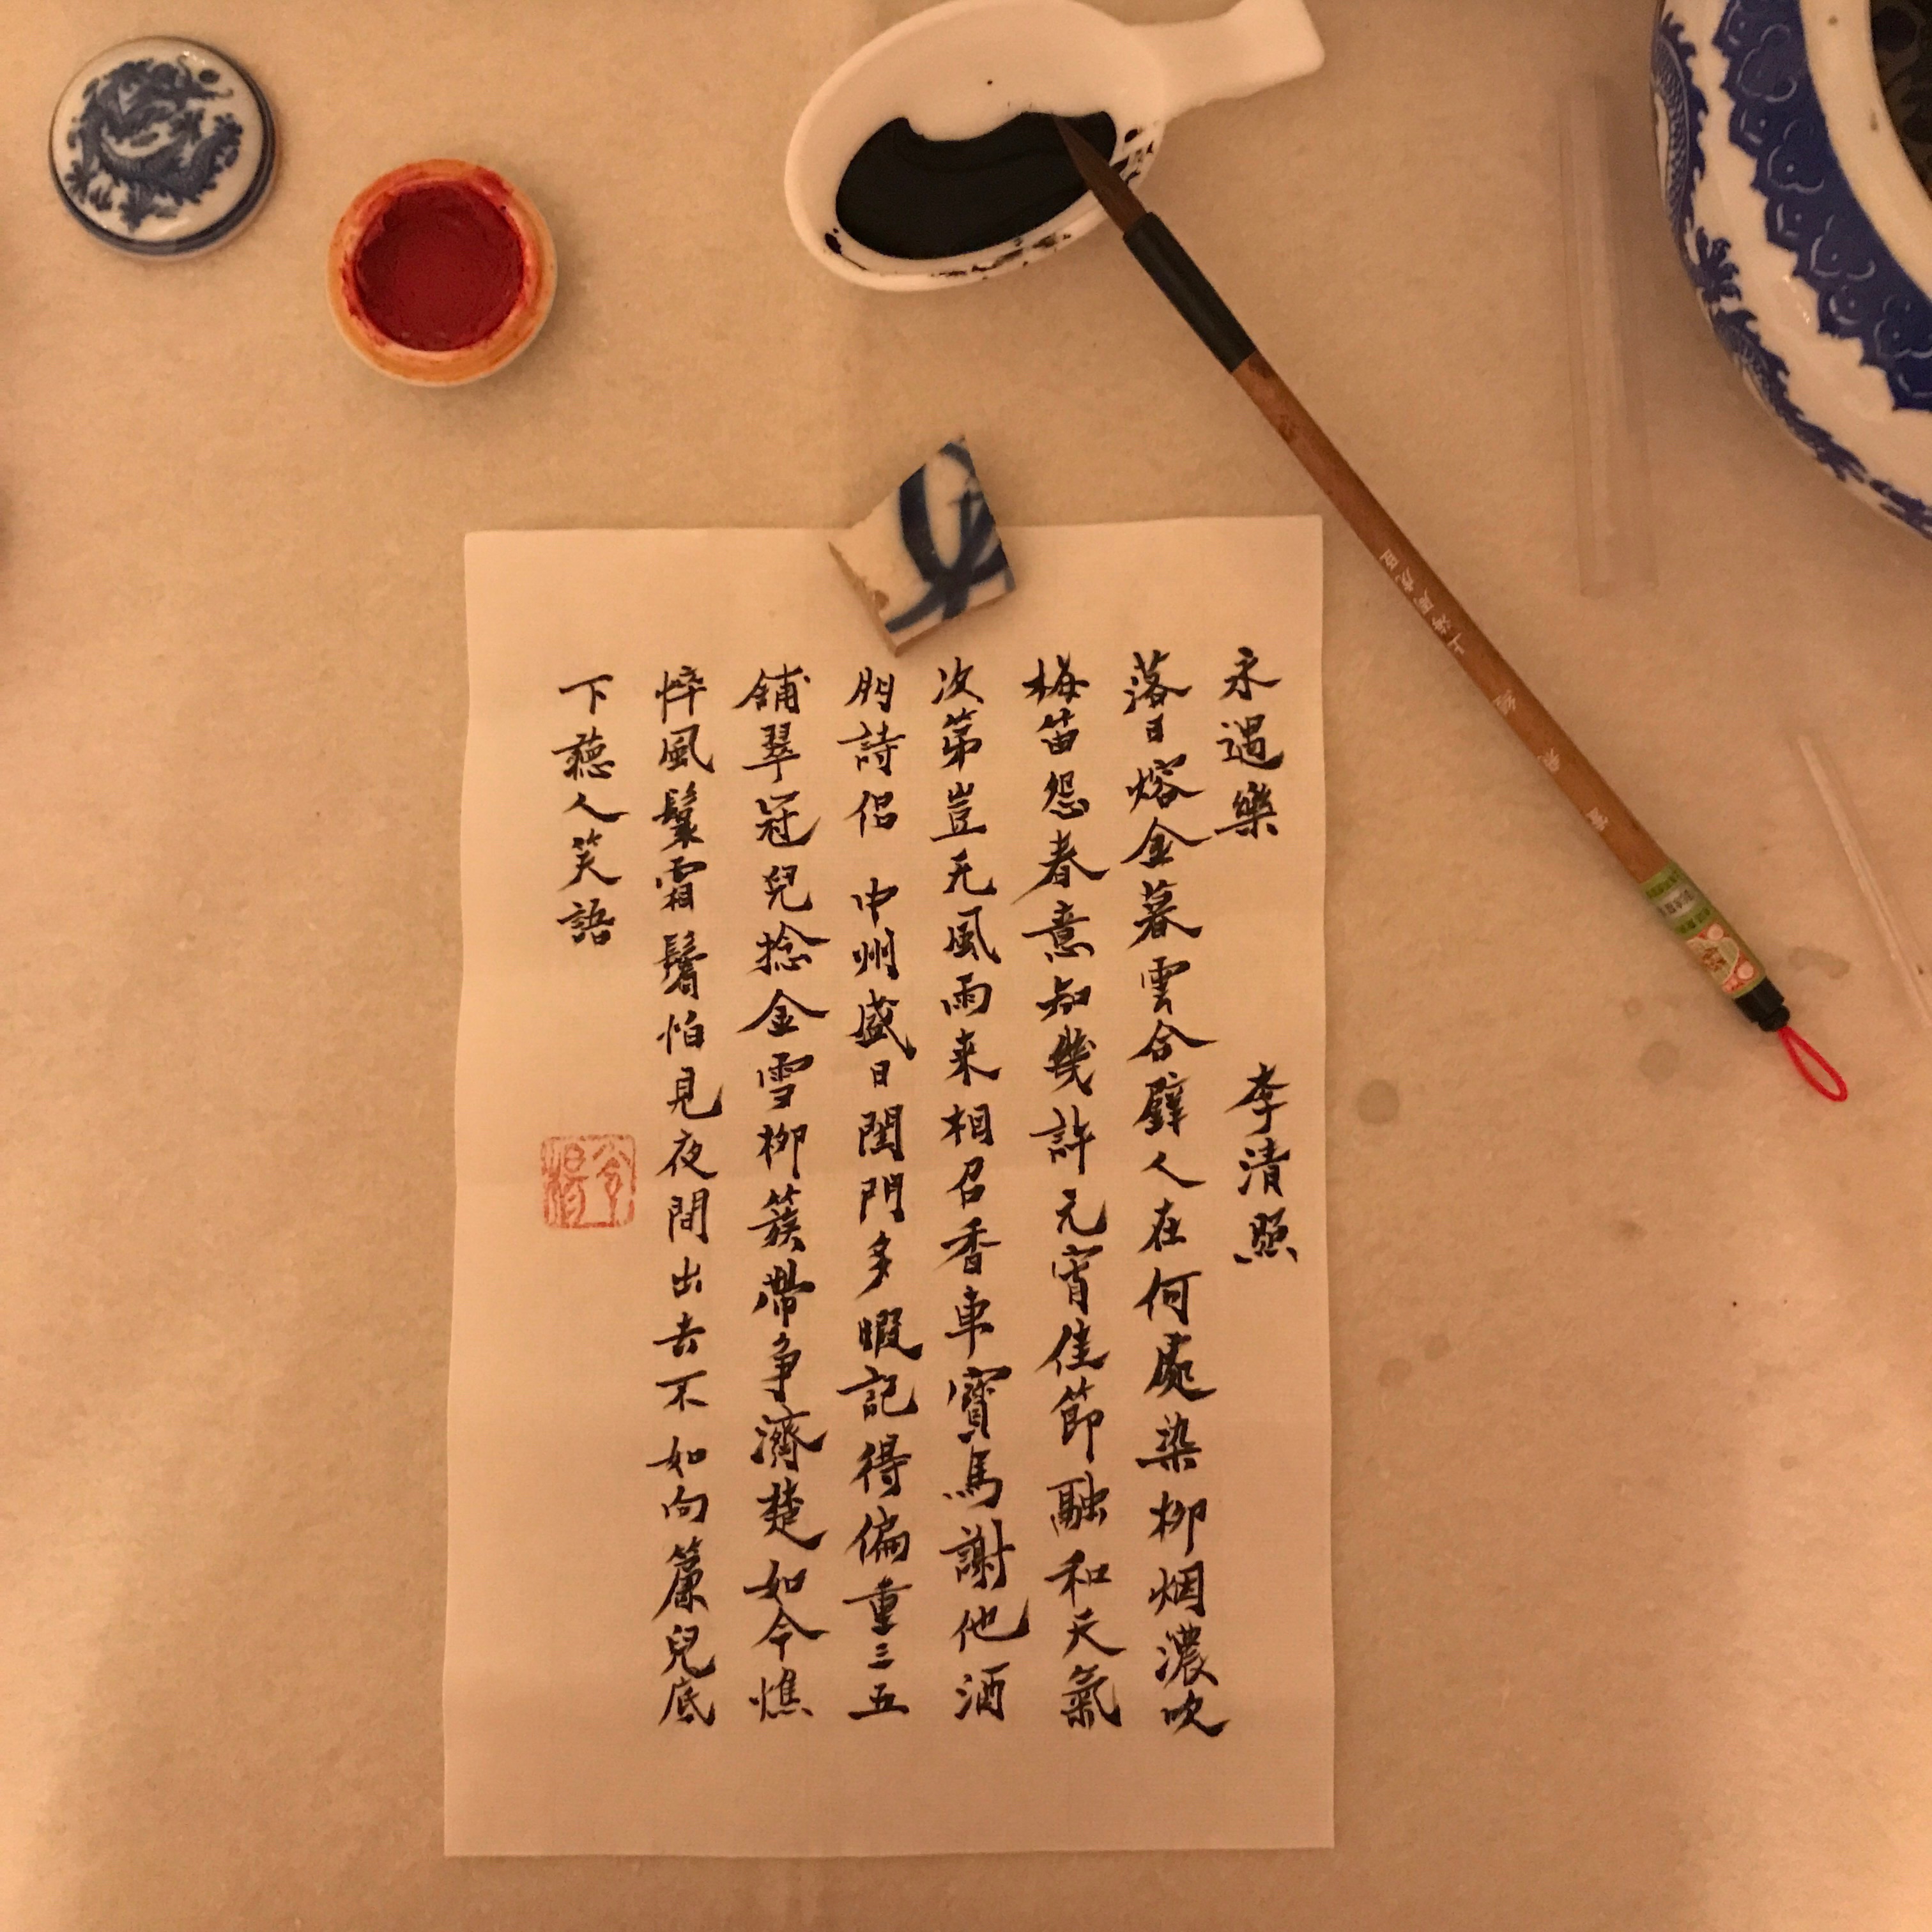 永遇樂 李清照
落日熔金暮雲合璧人在何處染柳烟濃吹
梅笛怨春意知幾許元宵佳節融和天氣
次第豈无風雨来相召香車寶馬謝他酒
朋詩侶 中州盛日閨門多暇記得偏重三五
舖翠冠兒捻金雪柳簇帶争濟楚如今憔
悴風鬟霜鬢怕見夜間出去不如向簾兒底
下聽人笑語